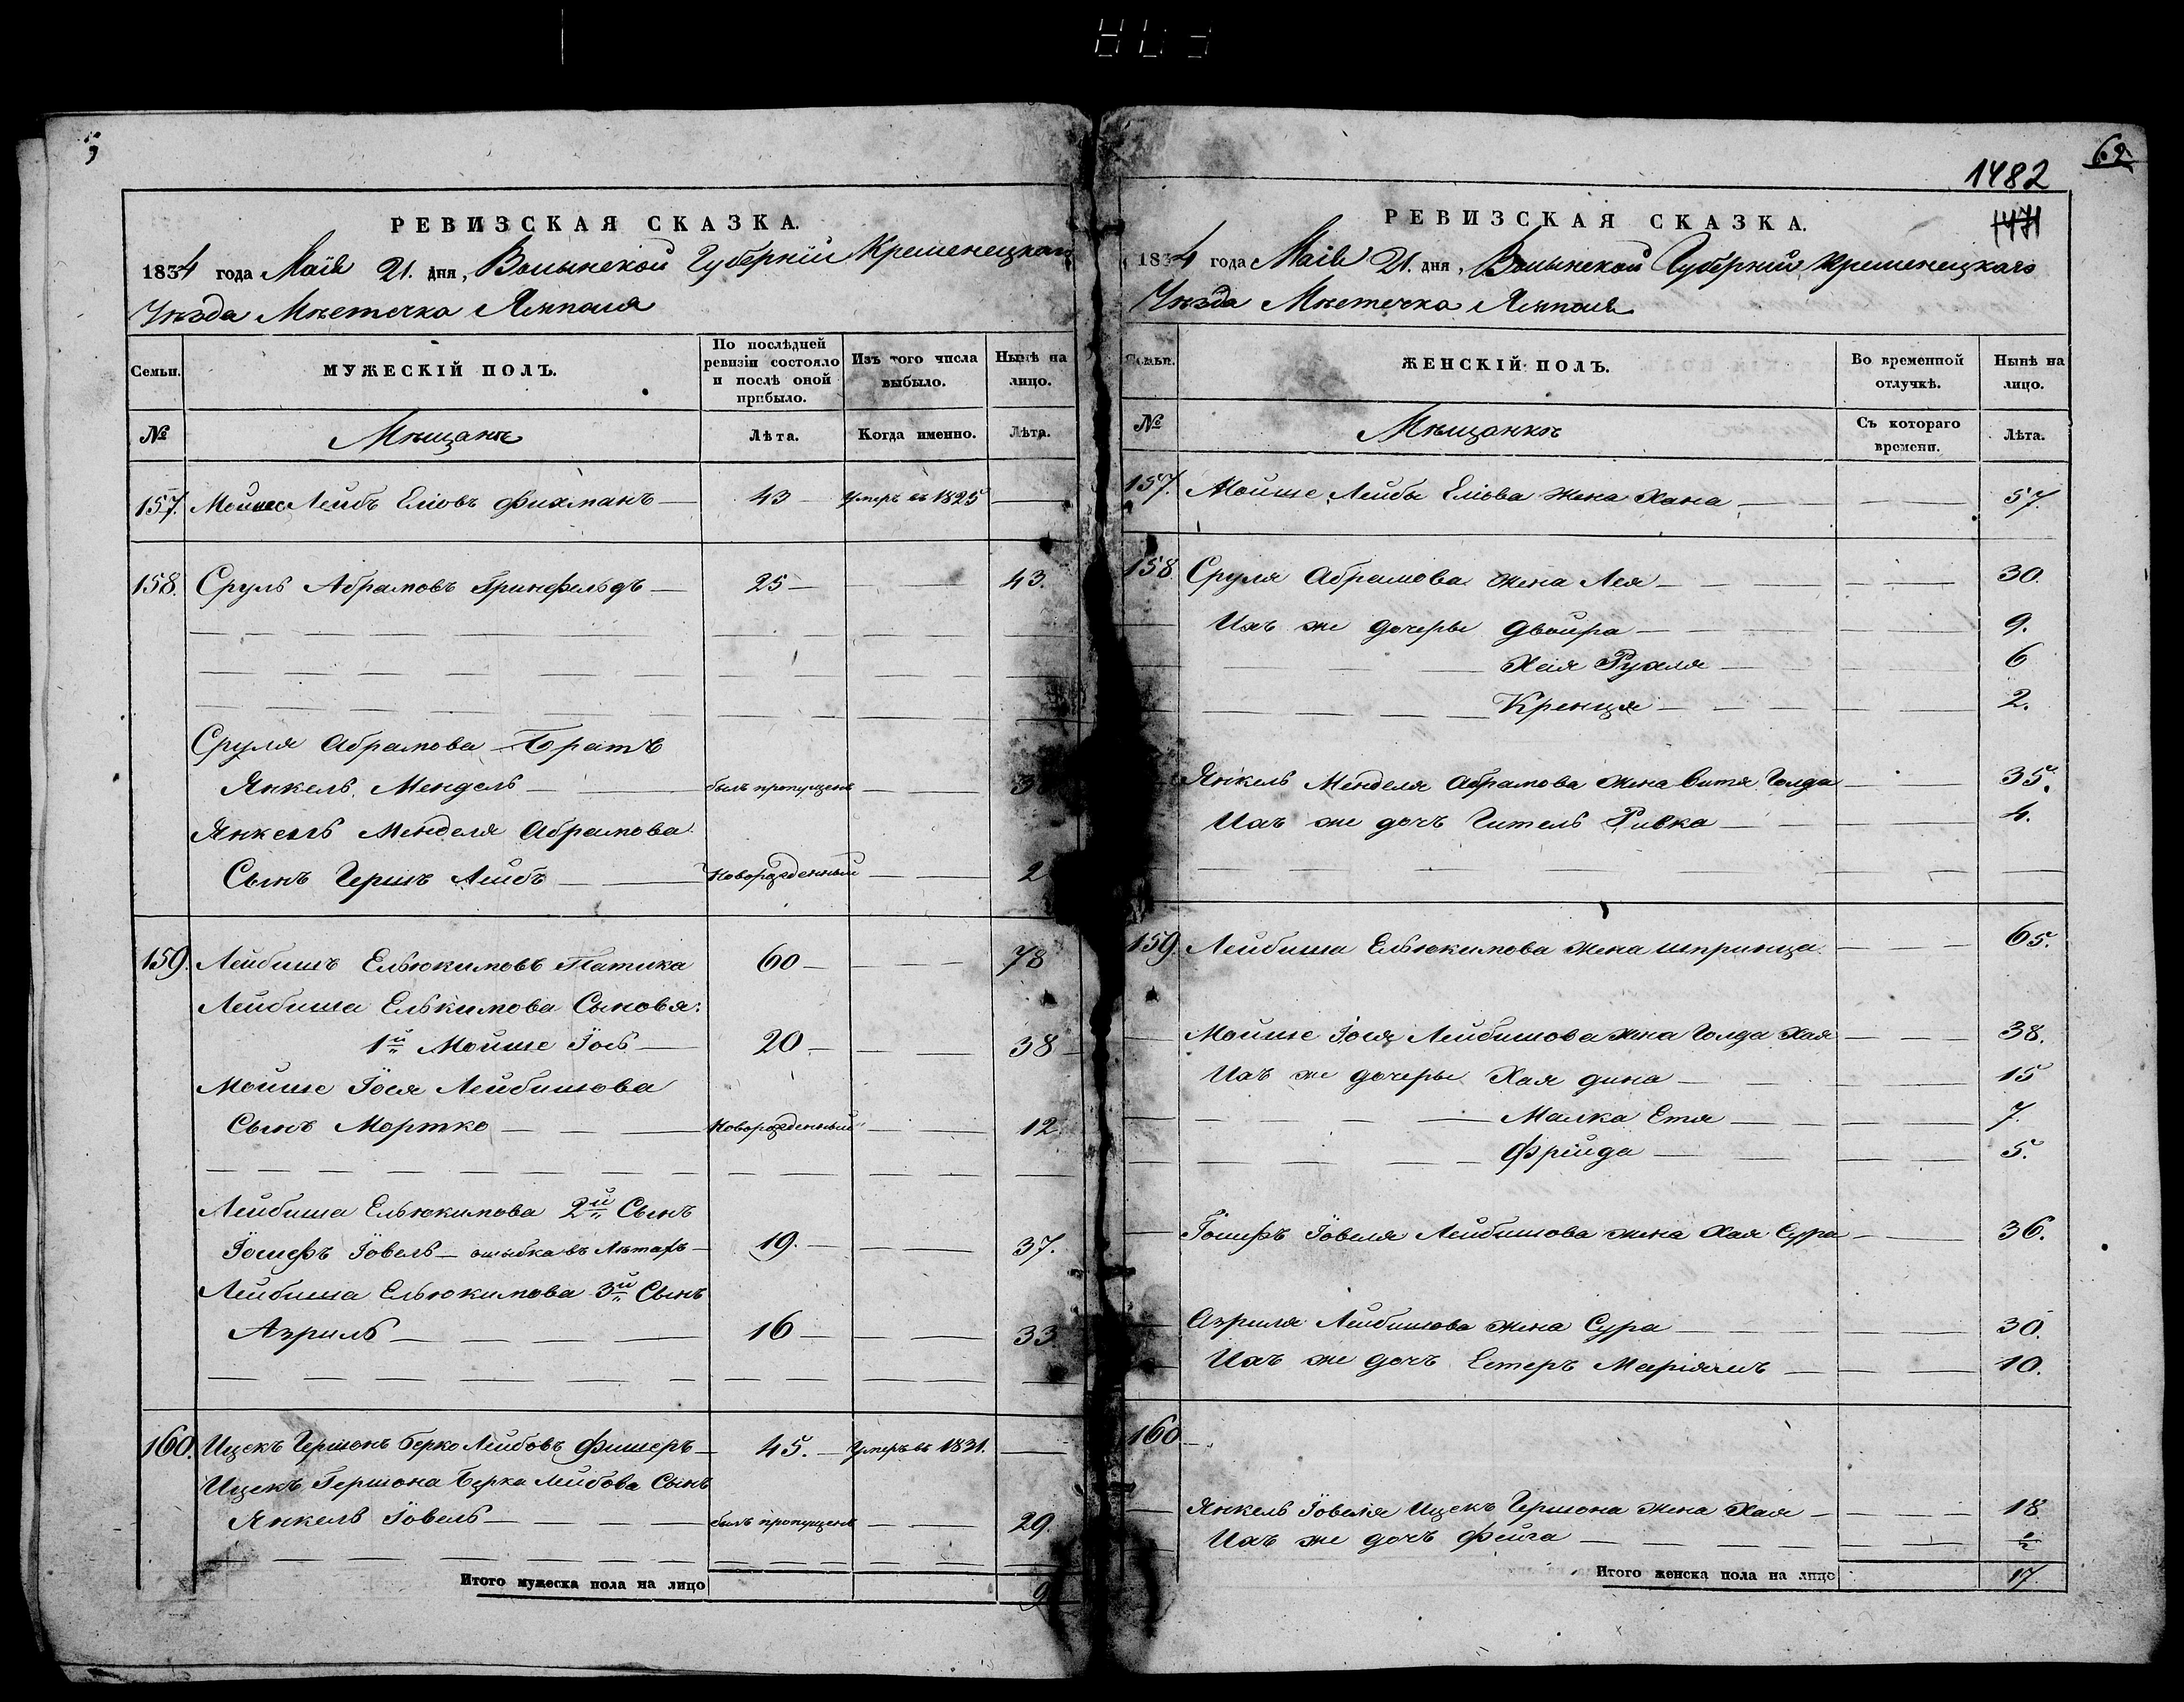 РЕВИЗСКАЯ СКАЗКА.
1834 года Маія 21. дня, Волынской Губерніи Кременецкаго
Уѣзда Мѣстечка Ямполя
Семьи.
МУЖЕСКІЙ ПОЛЪ.
По послѣдней ревизіи состояло и послѣ оной прибыло.
Изъ того числа выбыло.
Нынѣ на лицо.
№
Мѣщанъ
Лѣта.
Когда именно.
Лѣта.
157. Мошко Лейбъ Еліовъ Фихманъ — 43 — умеръ въ 1825 —
158. Сруль Абрамовъ Гринфельдъ — 25 — — 43.
Сруля Абрамова Братъ
Янкель Мендель — былъ пропущенъ —
Янкель Менделя Абрамова
Сынъ Гершъ Лейбъ — Новорожденный — 2
159. Лейбишъ Ельюкимовъ Патика 60 — — 78
Лейбиша Елькимова Сыновья:
1й Мойше Іось — 20 — — 38
Мойше Іося Лейбишова
Сынъ Мортко — Новорожденный — 12
Лейбиша Ельюкимова 2й Сынъ
Іосифъ Іовель — ошибка въ лѣтахъ — 19. — — 37.
Лейбиша Ельюкимова 3й Сынъ
Азриль — 16 — — 33.
160. Ицекъ Гершонъ Берко Лейбовъ Фишеръ — 45. — умеръ въ 1831. —
Ицекъ Гершона Берка Лейбова Сынъ
Янкель Іовель — былъ пропущенъ — 29.
Итого мужеска пола на лицо 9
62
1482
1471
РЕВИЗСКАЯ СКАЗКА.
1834 года Маія 21. дня, Волынской Губерніи Кременецкаго
Уѣзда Мѣстечка Ямполя
Семьи.
ЖЕНСКІЙ ПОЛЪ.
Во временной отлучкѣ.
Нынѣ на лицо.
№
Мѣщанкѣ
Съ котораго времени.
Лѣта.
157. Мойше Лейбы Еліова жена Хана — — 57.
158 Сруля Абрамова жена Лея — — 30.
Ихъ же дочеры Двойра — — 9.
Хая Рухля — — 6
Кренця — — 2.
Янкель Менделя Абрамова жена Витя Голда — 35.
Ихъ же дочъ Гитель Ривка — — 4.
159. Лейбиша Ельюкимова жена Шпринца — 65.
Мойше Іося Лейбишова жена Голда Хая — 38.
Ихъ же дочеры Хая Дина — — 15
Малка Етя — — 7.
Фрійда — — 5.
Іосифъ Іовеля Лейбишова жена Хая Сура — 36.
Азриля Лейбишова жена Сура — — 30.
Ихъ же дочъ Естеръ Маріямъ — — 10.
160
Янкель Іовеля Ицекъ Гершона жена Хая — — 18
Ихъ же дочъ Фейга — —
Итого женска пола на лицо 17.